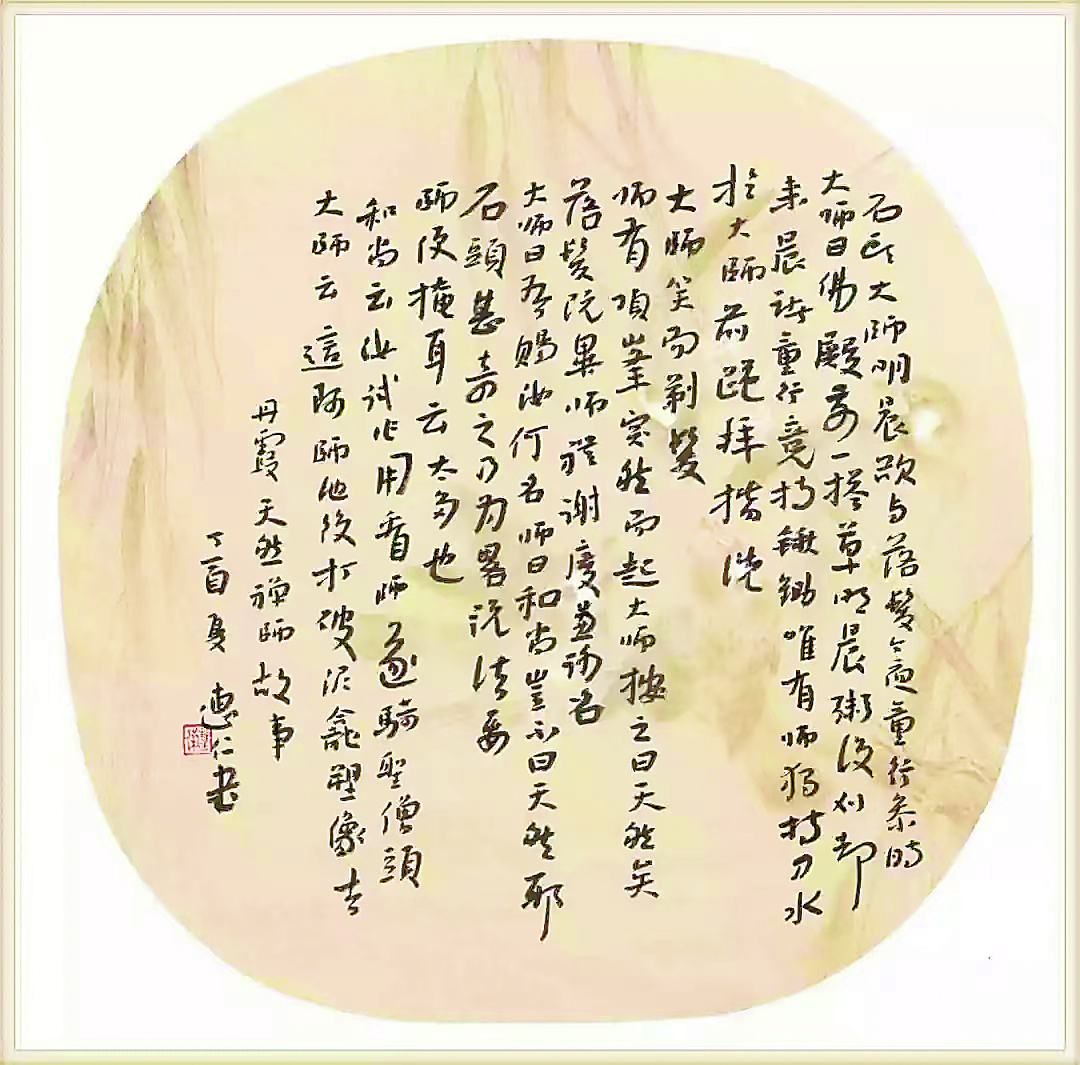 石頭大師明晨欲与落髮今夜童行參時
大師曰佛殿前一搭草明晨粥後刈却
來晨諸童行竞持鍬鋤唯有師独持刀水
於大師前跪拜揩洗
大師笑而剃髮
師有頂峯突然而起大師按之曰天然矣
落髮既畢師礼謝度兼謝名
大師曰吾赐汝何名師曰和尚豈不曰天然耶
石頭甚奇之乃为畧説法要
師便掩耳云太多也
和尚云汝试作用看師遂騎聖僧頭
大師云這阿師他後打破泥龕塑像去
丹霞天然禅師故事
丁酉夏 惠仁書